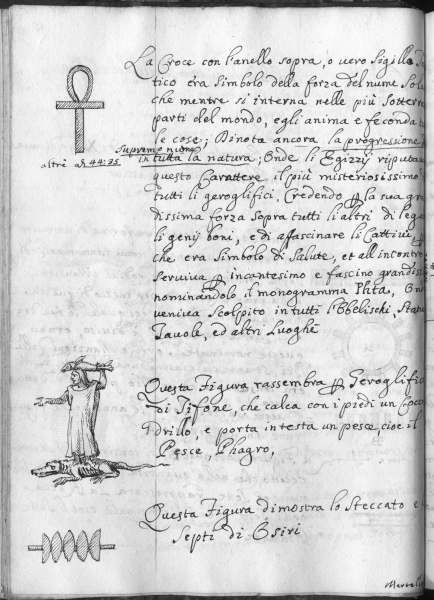 La Croce con l'anello sopra, o vero Sigillo
tico era Simbolo della forza del nume Sole
che mentre si interna nelle più Sotterr
parti del mondo, egli anima e feconda tu
le cose; Dinota ancora la progressione
Supremo nume
altri ah 44:35
in tutta la natura; Onde li Egizzÿ riputa
questo Carattere il più misteriosissimo d
tutti li geroglifici, Credendo ꝑ la sua gra
dissima forza sopra tutti li altri di lega
li genÿ boni, e di affascinare li Cattiui,
che era Simbolo di Salute, et all'incontro
Seruiua ꝑ incantesimo e fascino grandissi
nominandolo il monogramma Phta, On
veniua Scolpito in tutti l'Obbelischi, Statu
Tauole, ed altri Luoghi
Questa Figura rassembra ꝑ Geroglifico
Di Tifone, che calca con i piedi un Coco
drillo, e porta in testa un pesce, cioè il
Pesce, Phagro,
Questa Figura dimostra lo Steccato e
Septi di Osiri